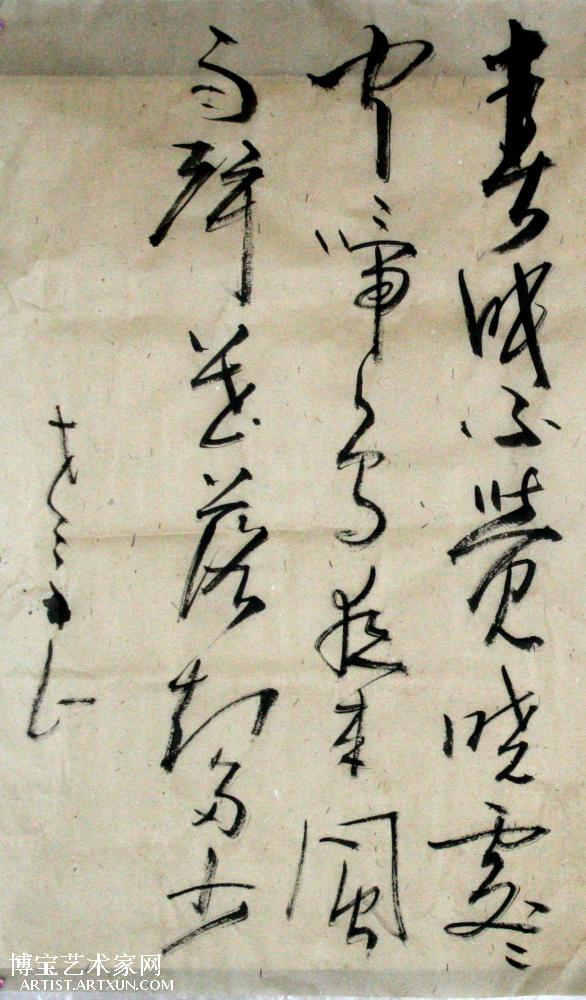 春眠不覺曉處〻
聞啼鳥夜来風
雨聲花落知多少
博宝艺术家网
ARTIST.ARTXUN.COM